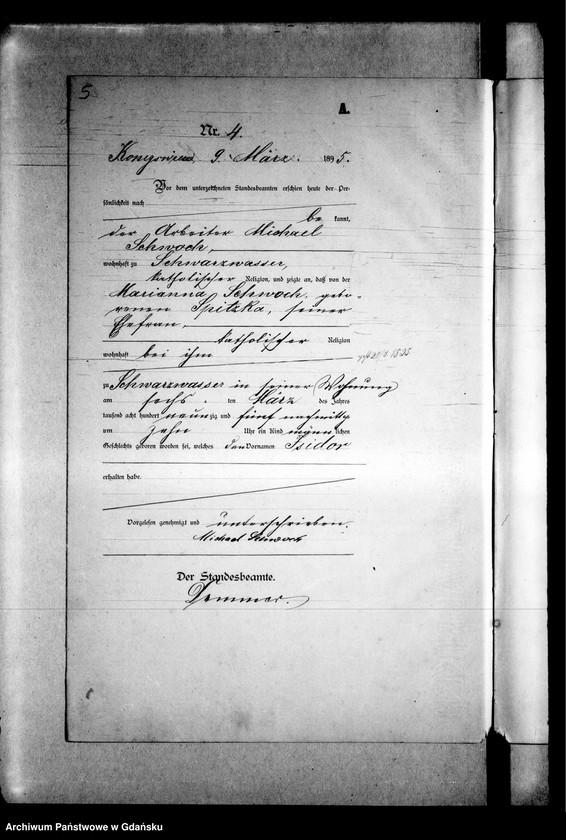 5
A.
Nr. 4.
9. März 1895.
Vor dem unterzeichneten Standesbeamten erschien heute der Per-
sönlichkeit nach
be kannt,
der Arbeiter Michael
Schwoch,
wohnhaft zu Schwarzwasser,
katholischer Religion, und zeigte an, daß von der
Marianna Schwoch, gebo-
renen Spitzka, seiner
Ehefrau,
katholischer Religion
wohnhaft bei ihm
zu Schwarzwasser in seiner Wohnung
am sechs. ten März des Jahres
tausend acht hundert neunzig und fünf nachmittg
um zehn Uhr ein Kind männlichen
Geschlechts geboren worden sei, welches den Vornamen Isidor
erhalten habe.
Vorgelesen genehmigt und unterschrieben.
Michael Schwoch
Der Standesbeamte.
Archiwum Państwowe w Gdańsku